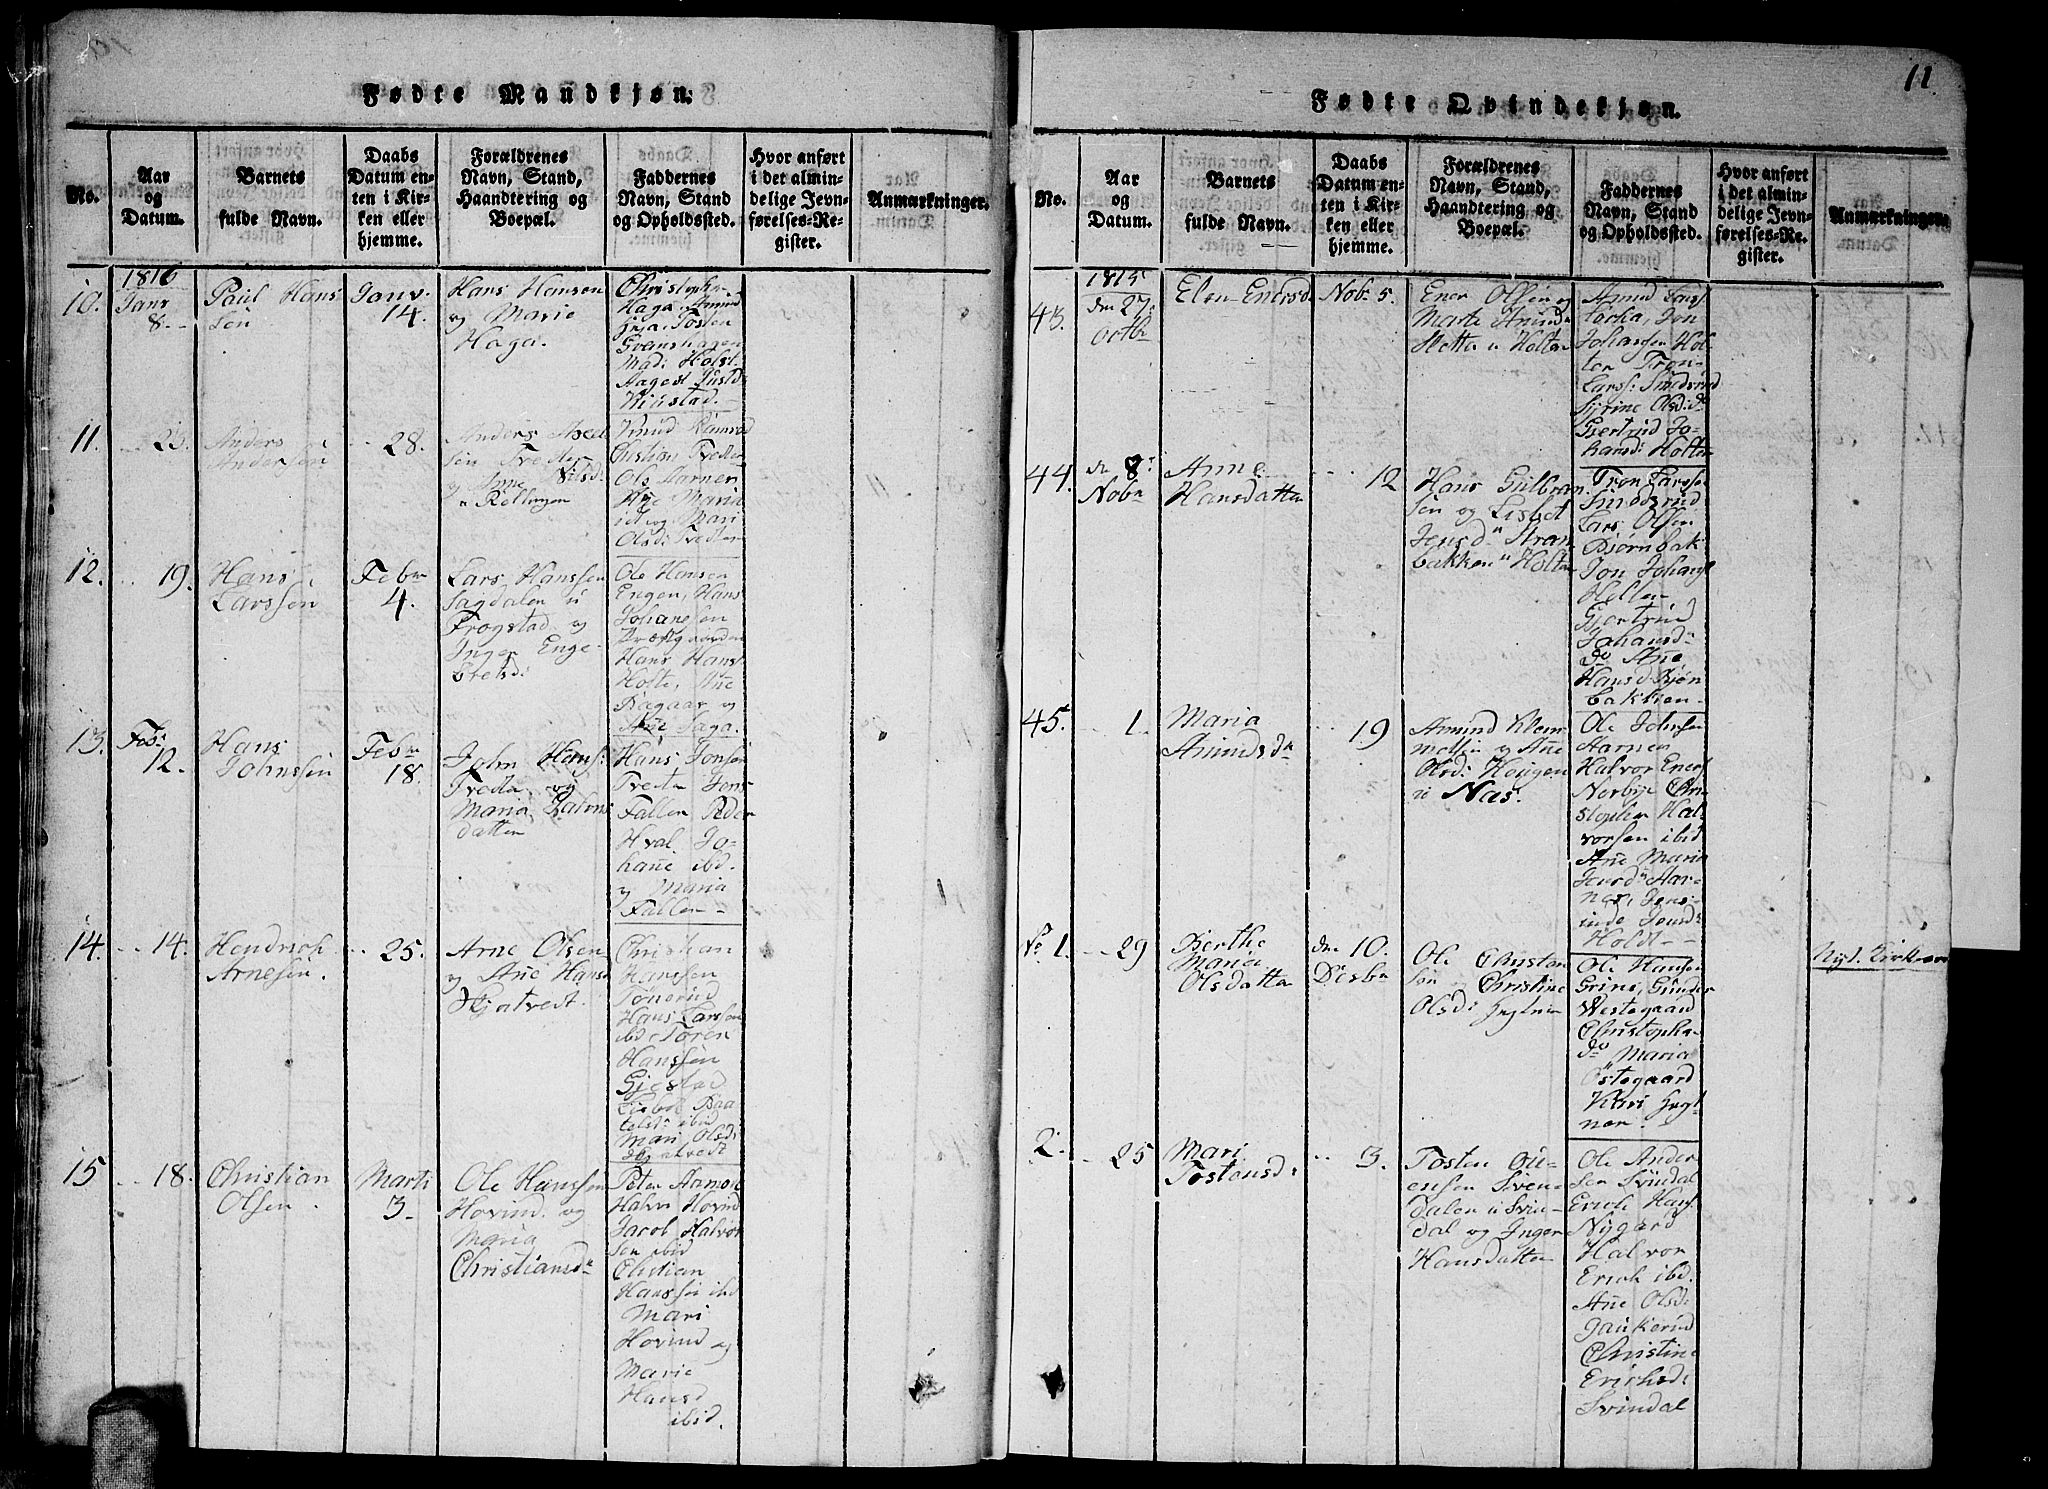 Fødte Mandkjøn.
No.
Aar
og
Datum.
Barnets
fulde Navn.
Daabs
Datum en-
ten i Kir-
ken eller
hjemme.
Forældrenes
Navn, Stand,
Haandtering og
Boepæl.
Faddernes
Navn, Stand
og Opholdssted.
Hvor anført
i det almin-
delige Jevn-
førelses-Re-
gister.
Anmærkninger.
10.
1816
Janr
8.
Paul Hans
Søn
Janv.
14.
Hans Hansen
og Marie
Haga.
Christopher
Haga, Amund
Tosten
Svenshagen
Mad: Holst
11.
23
Anders
Andersen
28.
Anders
Anne
Knud
Christian Tveter
Ols Harner
Ane Maria
og Mari
Olsd: Tveter
12.
19.
Hans
Larssen
Febr
4.
Lars Hanssen
Sagdalen u
Frogstad og
Inger Enge-
bretsd:
Ole Hansen
Engen, Hans
Johanesen
Præstgaarden
Hans Hans
Holte, Ane
og
Ane Haga.
13.
Feb:
12.
Hans
Johnssen
Febr
18.
John Hans:
Tveta og
Maria Halvors
datter
Hans Jonsen
Tveta Jens
Fallen Peder
Hval, Jo-
hane ibid.
og Maria
Fallen
14.
14.
Hendrich
Arnesen.
25.
Arne Olsen
og Ane Hans
Skjatvedt.
Christian
Hanssen
Tønsrud
Hans Larssen
ibid, Toren
Hanssen
Gjestad
ibid
Mari Olsd:
Skjatvedt
15
18.
Christian
Olsen.
Marti
3
Ole Hanssen
Hovind og
Maria
Christiansd
Peter Aamon
Halvr Hovind
Jacob Halvor
sen ibid
Christian
Hanssen ibd
Mari
Hovind og
Marie
Hansd
ibid.
11.
Fødte Qvindekjøn.
No.
Aar
og
Datum.
Barnets
fulde Navn.
Daabs
Datum en-
ten i Kir-
ken eller
hjemme.
Forældrenes
Navn, Stand,
Haandtering og
Boepæl.
Faddernes
Navn, Stand
og Opholdssted.
Hvor anført
i det almin-
delige Jevn-
førelses-Re-
gister.
Anmærkninger.
43.
1815
den 27:
octbr
Elen Enersd.
Nobr 5.
Ener Olsen og
Marte Amund
Sletta u Holter
Amund Lars
Jon
Johansen Hol-
ter Tron
Larss: Smedsrud
Syrine Olsd: do
Gjertrud Jo-
hansd: Holter
44.
den 8:
Nobr
Anne
Hansdatter
12
Hans Gulbran
sen og Lisbet
Jensd Stran
bakken u Holter
Tron Larsse
Smedsrud
Lars Olsen
Bjørnbak
Jon Johans
Holter
Gjertrud
Johansd
do Ane
Hansd Bjørn
bakken
45.
1.
Maria
Amundsd
19
Amund Klem-
metsen og Ane
Olsd: Hougen
u Nas.
Ole Johnsen
Harner
Halvor Eners
Norbye Chri
stopher Hal
vorsen ibid
Ane Maria
Jensd Har-
ner, Jens-
Jensd:
Holt
No 1.
29
Berthe
Maria
Olsdatter
den 10.
Decbr
Ole Christen
søn og Christine
Olsd:
Ole Hansen
Grini, Gunder
Westegaard
Christopher
do Maria
Østegaard
Kari
Nyt Kirkeaar
2.
25
Mari
Tostensd:
3.
Tosten Gu-
ensen Sven-
dalen u Svin-
dal og Inger
Hansdatter
Ole Ander
sen Svindal
Erich Hans
Nygard
Halvor
Erich ibid.
Ane Olsd:
Christine
Erichsd:
Svindal